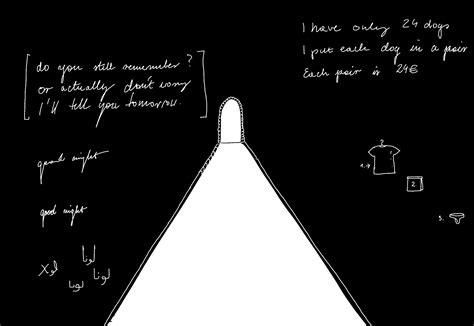 do you still remember ?
or actually don't worry
I'll tell you tomorrow.
good night
good night
لونا
لونا
I have only 24 dogs
I put each dog in a pair
Each pair is 24€
2
1.
2
3.